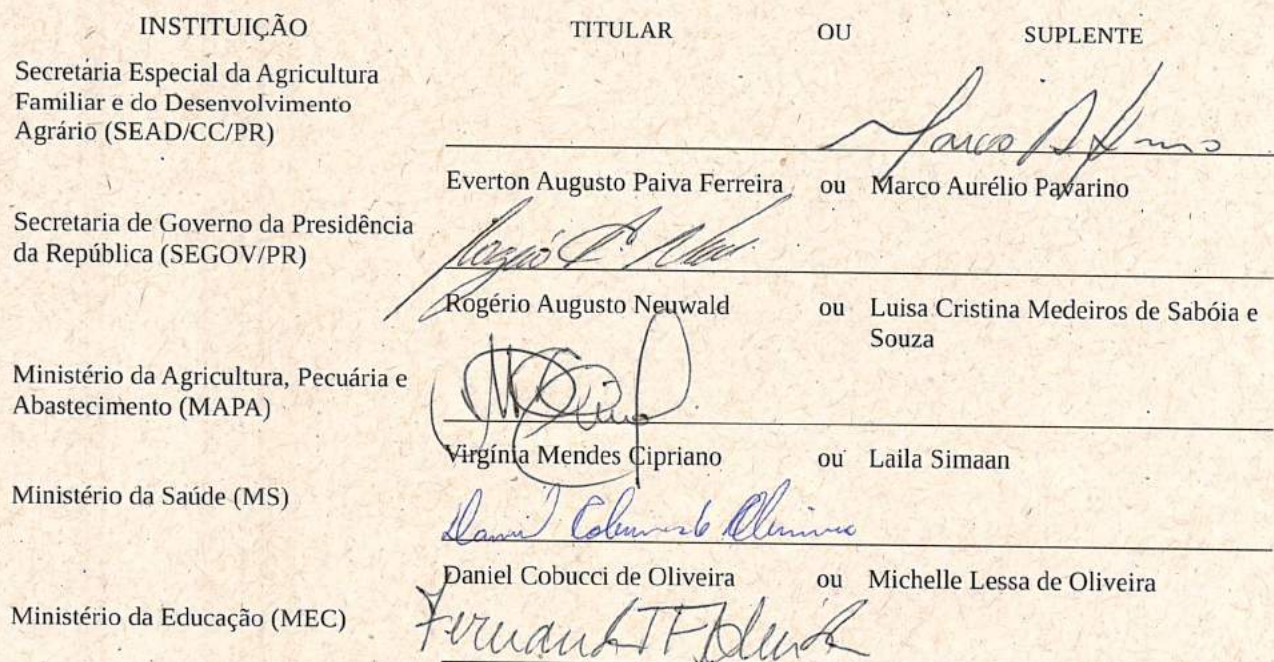 INSTITUIÇÃO TITULAR OU SUPLENTE
Secretaria Especial da Agricultura
Familiar e do Desenvolvimento
Agrário (SEAD/CC/PR)
Marco A
Everton Augusto Paiva Ferreira ou Marco Aurélio Pavarino
Secretaria de Governo da Presidência
da República (SEGOV/PR)
Rogério Augusto Neuwald ou Luisa Cristina Medeiros de Sabóia e
Souza
Ministério da Agricultura, Pecuária e
Abastecimento (MAPA)
Virgínia Mendes Cipriano ou Laila Simaan
Ministério da Saúde (MS)
Daniel Cobucci de Oliveira
Daniel Cobucci de Oliveira ou Michelle Lessa de Oliveira
Ministério da Educação (MEC)